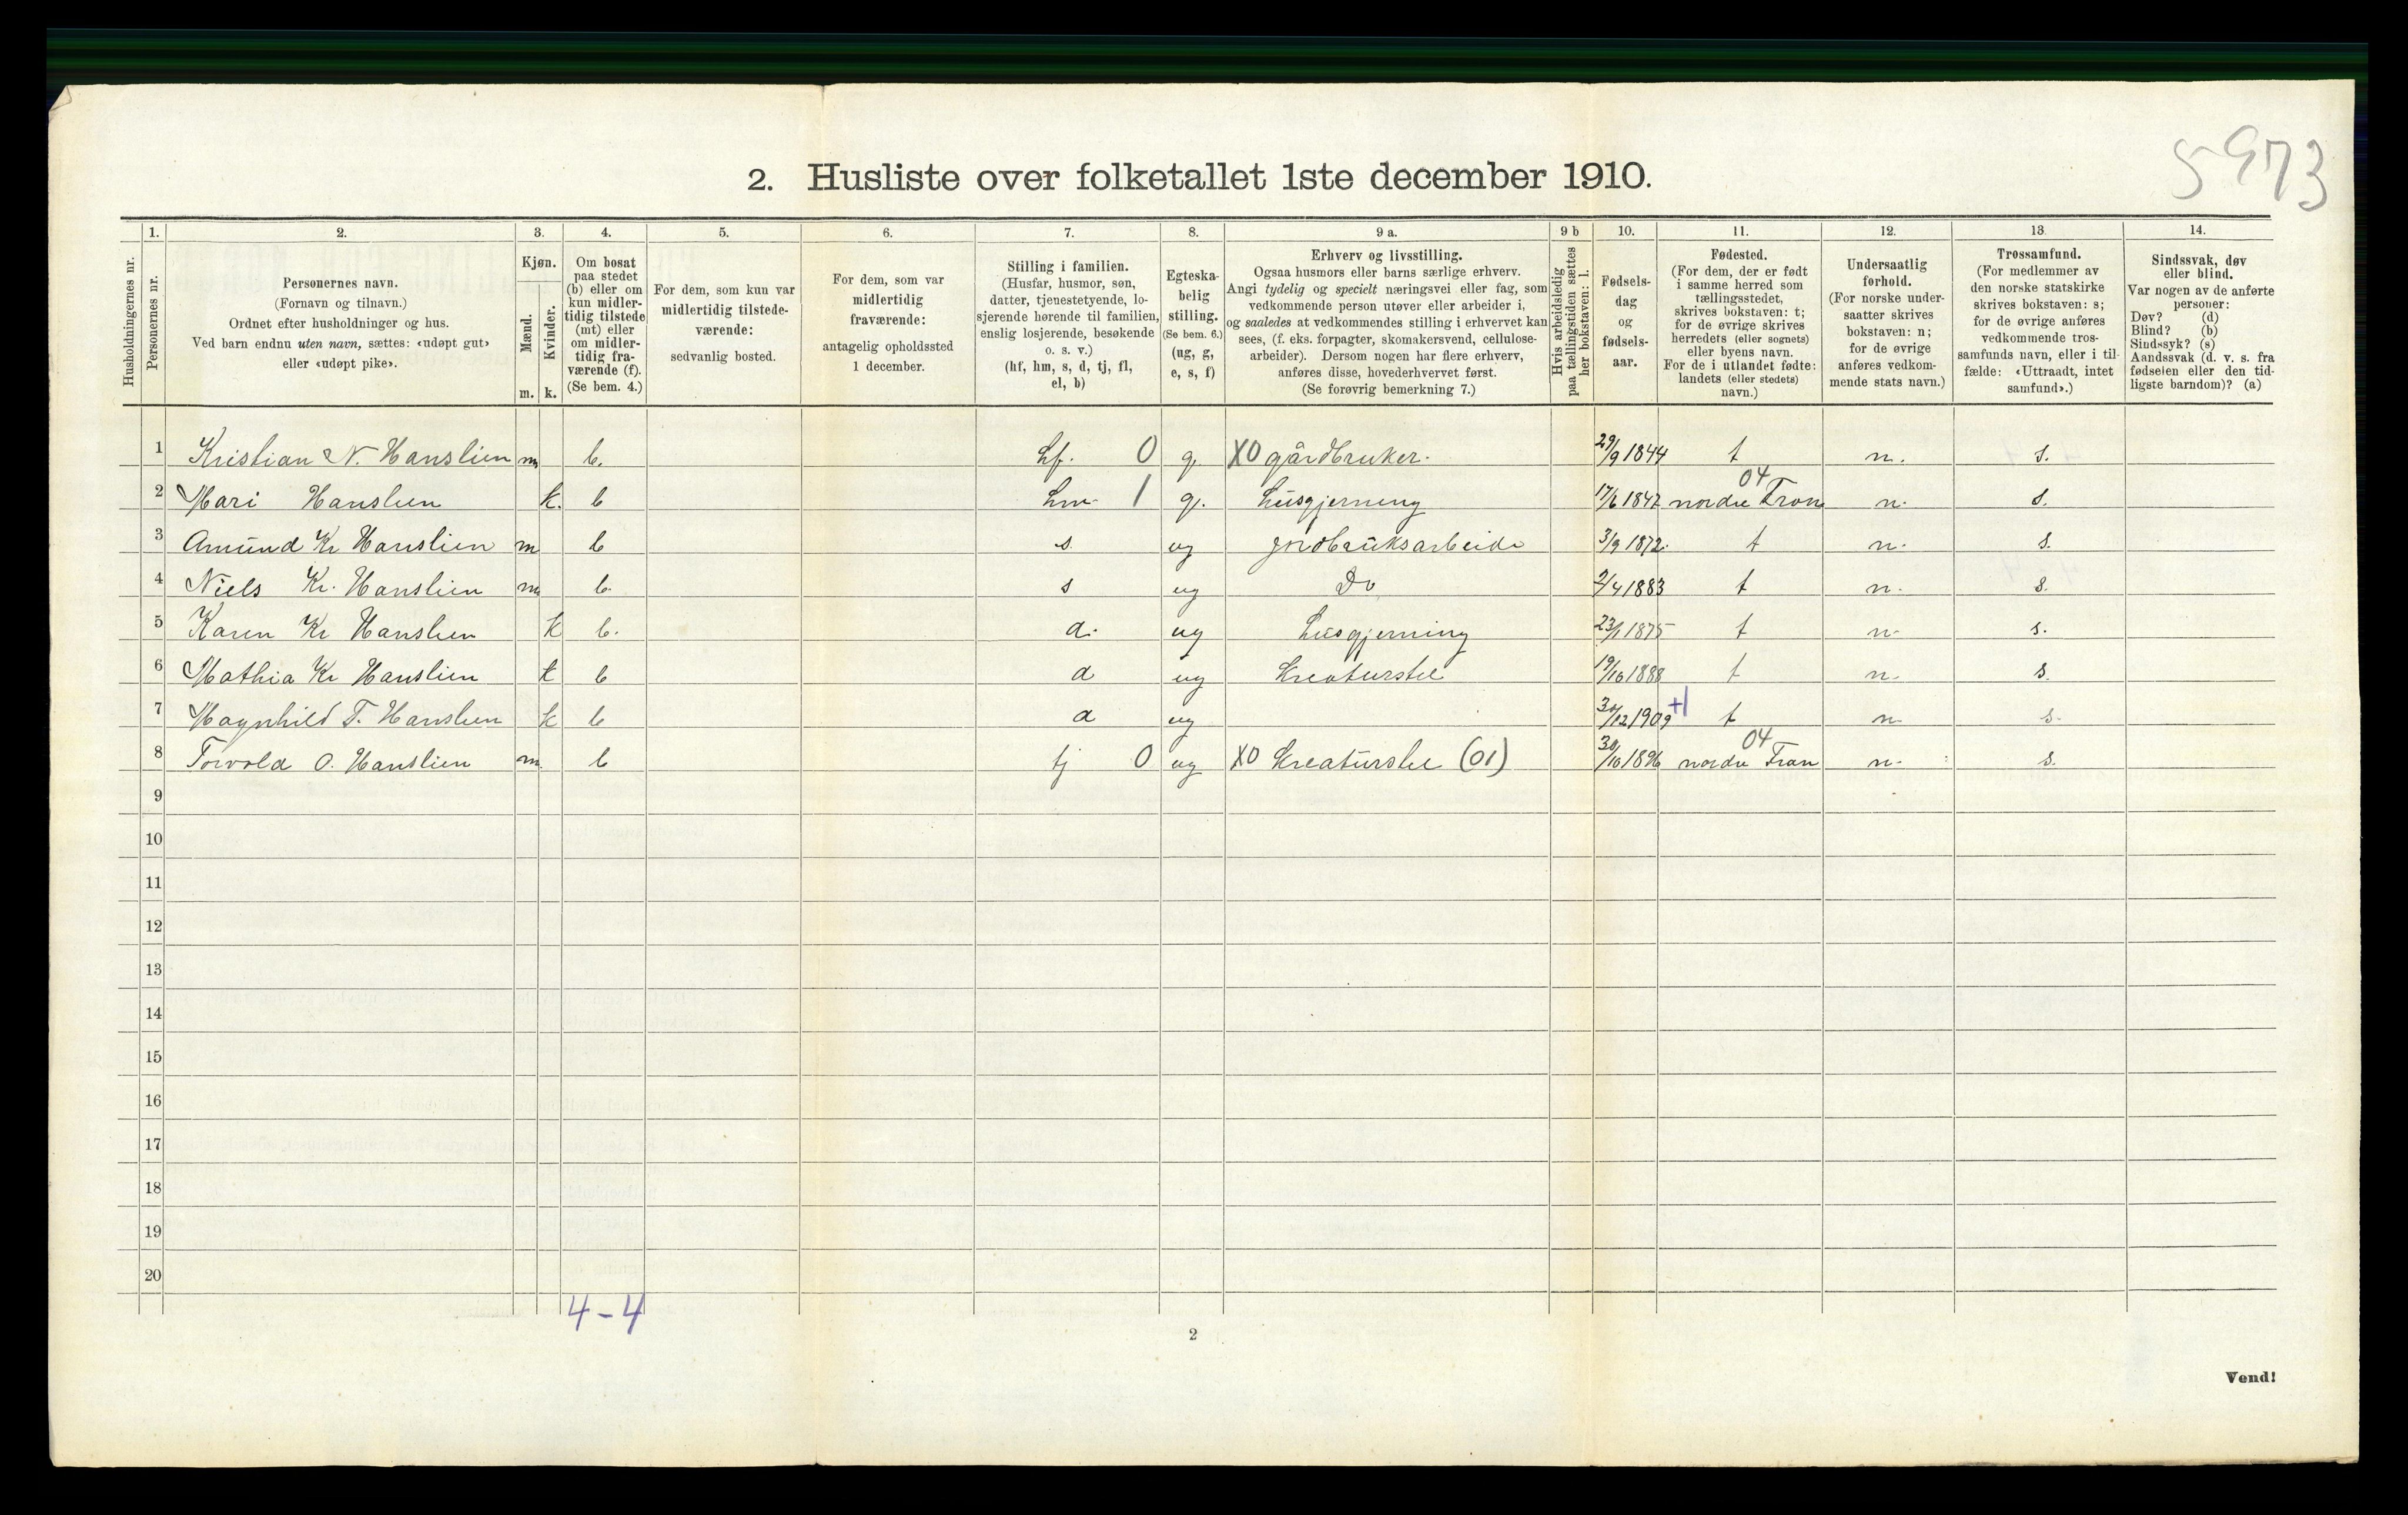 5973
2. Husliste over folketallet 1ste december 1910.
Husholdningernes nr.
1.
Personernes nr.
2.
Personernes navn.
(Fornavn og tilnavn.)
Ordnet efter husholdninger og hus.
Ved barn endnu uten navn, sættes: «udøpt gut»
eller «udøpt pike».
3.
Kjøn.
Mænd.
Kvinder.
m. k.
4.
Om bosat
paa stedet
(b) eller om
kun midler-
tidig tilstede
(mt) eller
om midler-
tidig fra-
værende (f).
(Se bem. 4.)
5.
For dem, som kun var
midlertidig tilstede-
værende:
sedvanlig bosted.
6.
For dem, som var
midlertidig
fraværende:
antagelig opholdssted
1 december.
7.
Stilling i familien.
(Husfar, husmor, søn,
datter, tjenestetyende, lo-
sjerende hørende til familien,
enslig losjerende, besøkende
o. s. v.)
(hf, hm, s, d, tj, fl,
el, b)
8.
Egteska-
belig
stilling.
(Se bem. 6.)
(ug, g,
e, s, f)
9 a.
Erhverv og livsstilling.
Ogsaa husmors eller barns særlige erhverv.
Angi tydelig og specielt næringsvei eller fag, som
vedkommende person utøver eller arbeider i,
og saaledes at vedkommendes stilling i erhvervet kan
sees, (f. eks. forpagter, skomakersvend, cellulose-
arbeider). Dersom nogen har flere erhverv,
anføres disse, hovederhvervet først.
(Se forøvrig bemerkning 7.)
9 b
Hvis arbeidsledig
paa tællingstiden sættes
her bokstaven: l.
10.
Fødsels-
dag
og
fødsels-
aar.
11.
Fødested.
(For dem, der er født
i samme herred som
tællingsstedet,
skrives bokstaven: t;
for de øvrige skrives
herredets (eller sognets)
eller byens navn.
For de i utlandet fødte:
landets (eller stedets)
navn.)
12.
Undersaatlig
forhold.
(For norske under-
saatter skrives
bokstaven: n;
for de øvrige
anføres vedkom-
mende stats navn.)
13.
Trossamfund.
(For medlemmer av
den norske statskirke
skrives bokstaven: s;
for de øvrige anføres
vedkommende tros-
samfunds navn, eller i til-
fælde: «Uttraadt, intet
samfund».)
14.
Sindssvak, døv
eller blind.
Var nogen av de anførte
personer:
Døv? (d)
Blind? (b)
Sindssyk? (s)
Aandssvak (d. v. s. fra
fødselen eller den tid-
ligste barndom)? (a)
1 Kristian N. Hanslien m b. hf. 0 g. X0 gårdbruker. 29/9 1844 t n. s.
2 Mari Hanslien k. b hm 1 g. husgjerning 17/6 1847 nordre Fron 04 n. s.
3 Amund Kr Hanslien m b s. ug jordbruksarbeide 3/9 1872. t n. s.
4 Niels Kr. Hanslien m b. s ug Do 2/4 1883 t n. s.
5 Karen Kr Hanslien k b. d. ug husgjerning 23/1 1875 t n. s.
6 Mathia Kr Hanslien k b d ug Kreaturstel 19/10 1888 t n. s.
7 Magnhild T. Hanslien k b d ug 30/12 1909 +1 t n. s.
8 Torvald O. Hanslien m. b tj 0 ug X0 Kreaturstel (01) 30/10 1896 nordre Fron 04 n. s.
9
10
11
12
13
14
15
16
17
18
19
20
4-4
2
Vend!